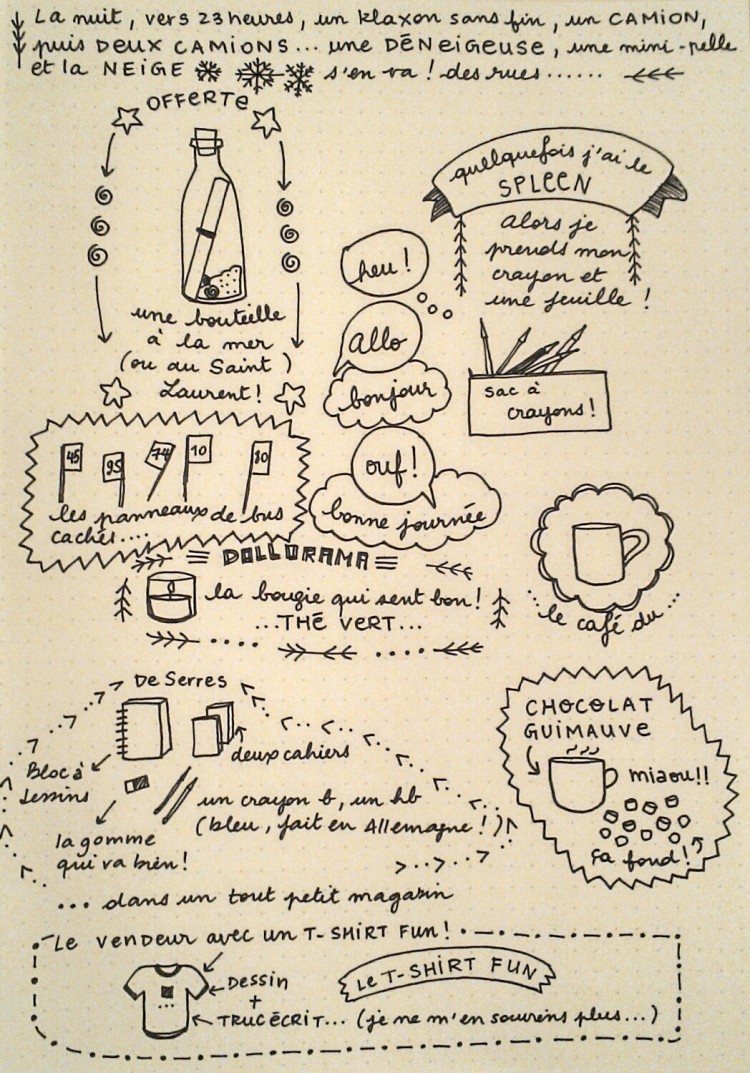 La nuit, vers 23 heures, un klaxon sans fin, un CAMION,
puis DEUX CAMIONS... une DÉNeiGEUSE, une mini-pelle
et la NEIGE s'en va ! des rues......
OFFERTE
une bouteille
à la mer
(ou au Saint )
Laurent !
quelquefois j'ai le
SPLEEN
alors je
prends mon
crayon et
une feuille !
sac à
crayons !
heu !
Allo
bonjour
ouf !
bonne journée
45
95
74
10
80
les panneaux de bus
cachés....
DOLLORAMA
la bougie qui sent bon !
...THÉ VERT...
...le café du...
De Serres
Bloc à
dessins
deux cahiers
un crayon b, un hb
(bleu, fait en Allemagne !)
la gomme
qui va bien !
... dans un tout petit magasin
CHOCOLAT
GUIMAUVE
miaou !!
ça fond !
Le vendeur avec un T-SHIRT FUN !
Dessin
+
TRUC ÉCRIT... (je ne m'en souviens plus...)
Le T-SHIRT FUN